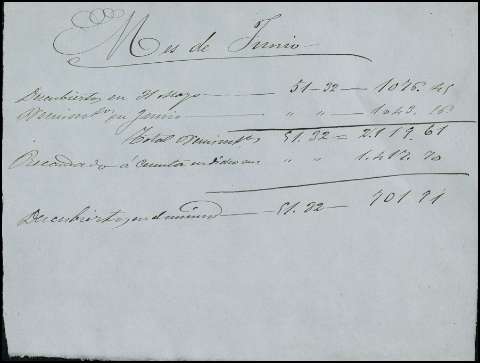 Mes de Junio
Descubiertos en 31 Mayo — 51-32 — 1076.45
Vencimtos en Junio — " " — 1043.16
Total Vencimtos 51.32 = 2119.61
Recaudado á Cuenta en dicho mes " " 1.417.70
Descubiertos en el mismo — 51.32 — 701.91